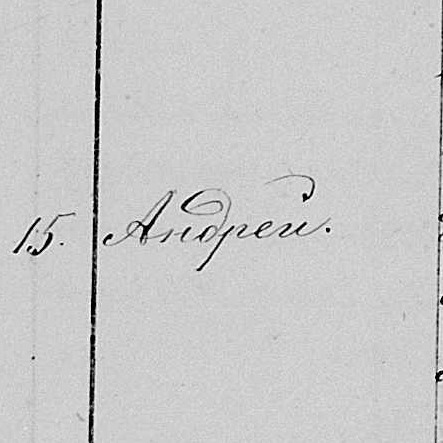 15. Андрей.